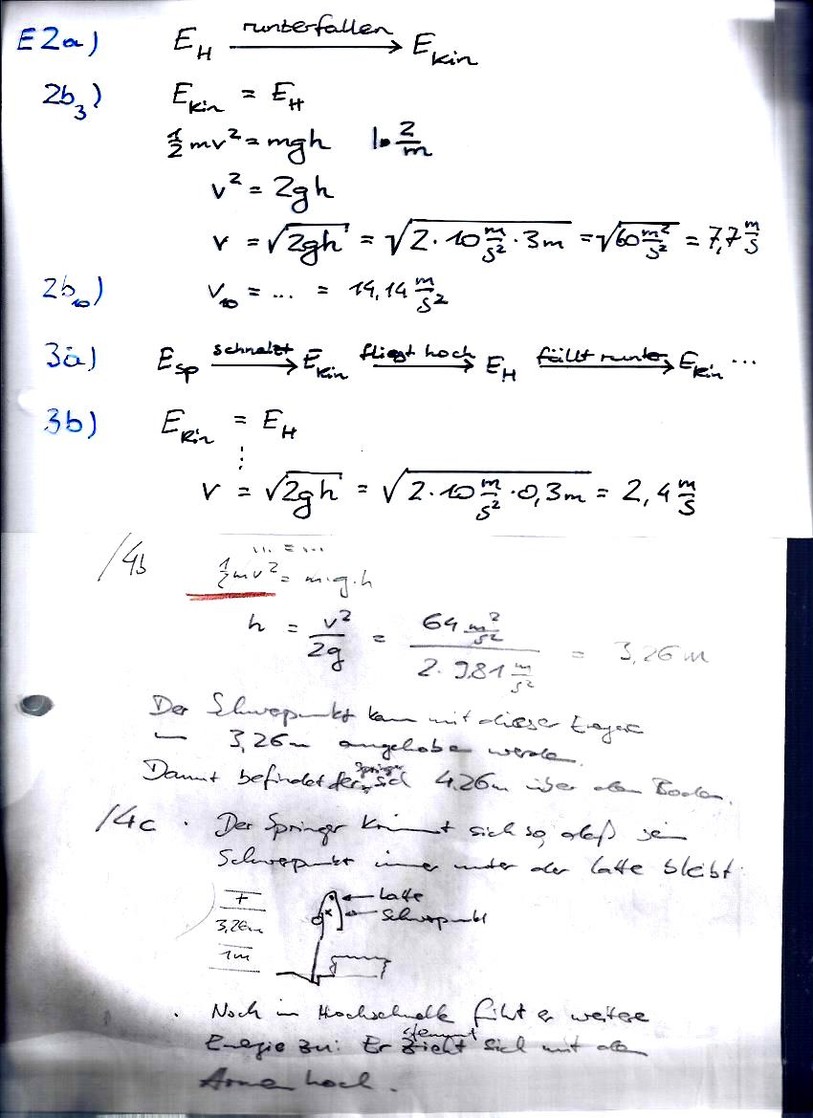 E2a) E_H runterfallen → E_kin
2b₃) E_kin = E_H
½mv² = mgh |· 2/m
v² = 2gh
v = √2gh = √2·10 m/s² · 3m = √60 m²/s² = 7,7 m/s
2b₁₀) v₁₀ = ... = 14,14 m/s²
3a) E_sp schnalzt → E_kin fliegt hoch → E_H fällt runter → E_kin ...
3b) E_kin = E_H
⋮
v = √2gh = √2·10 m/s² · 0,3m = 2,4 m/s
... = ...
/4b ½mv² = m·g·h
h = v²/2g = 64 m²/s² / 2·9,81 m/s² = 3,26m
Der Schwerpunkt kann mit dieser Energie
um 3,26m angehoben werden.
Damit befindet der Springer sich 4,26m über dem Boden.
/4c · Der Springer krümmt sich so, daß sein
Schwerpunkt immer unter der Latte bleibt.
+
Latte
3,26m
Schwerpunkt
1m
· Noch im Hochschnellen führt er weitere
Energie zu: Er stemmt sich mit den
Armen hoch.